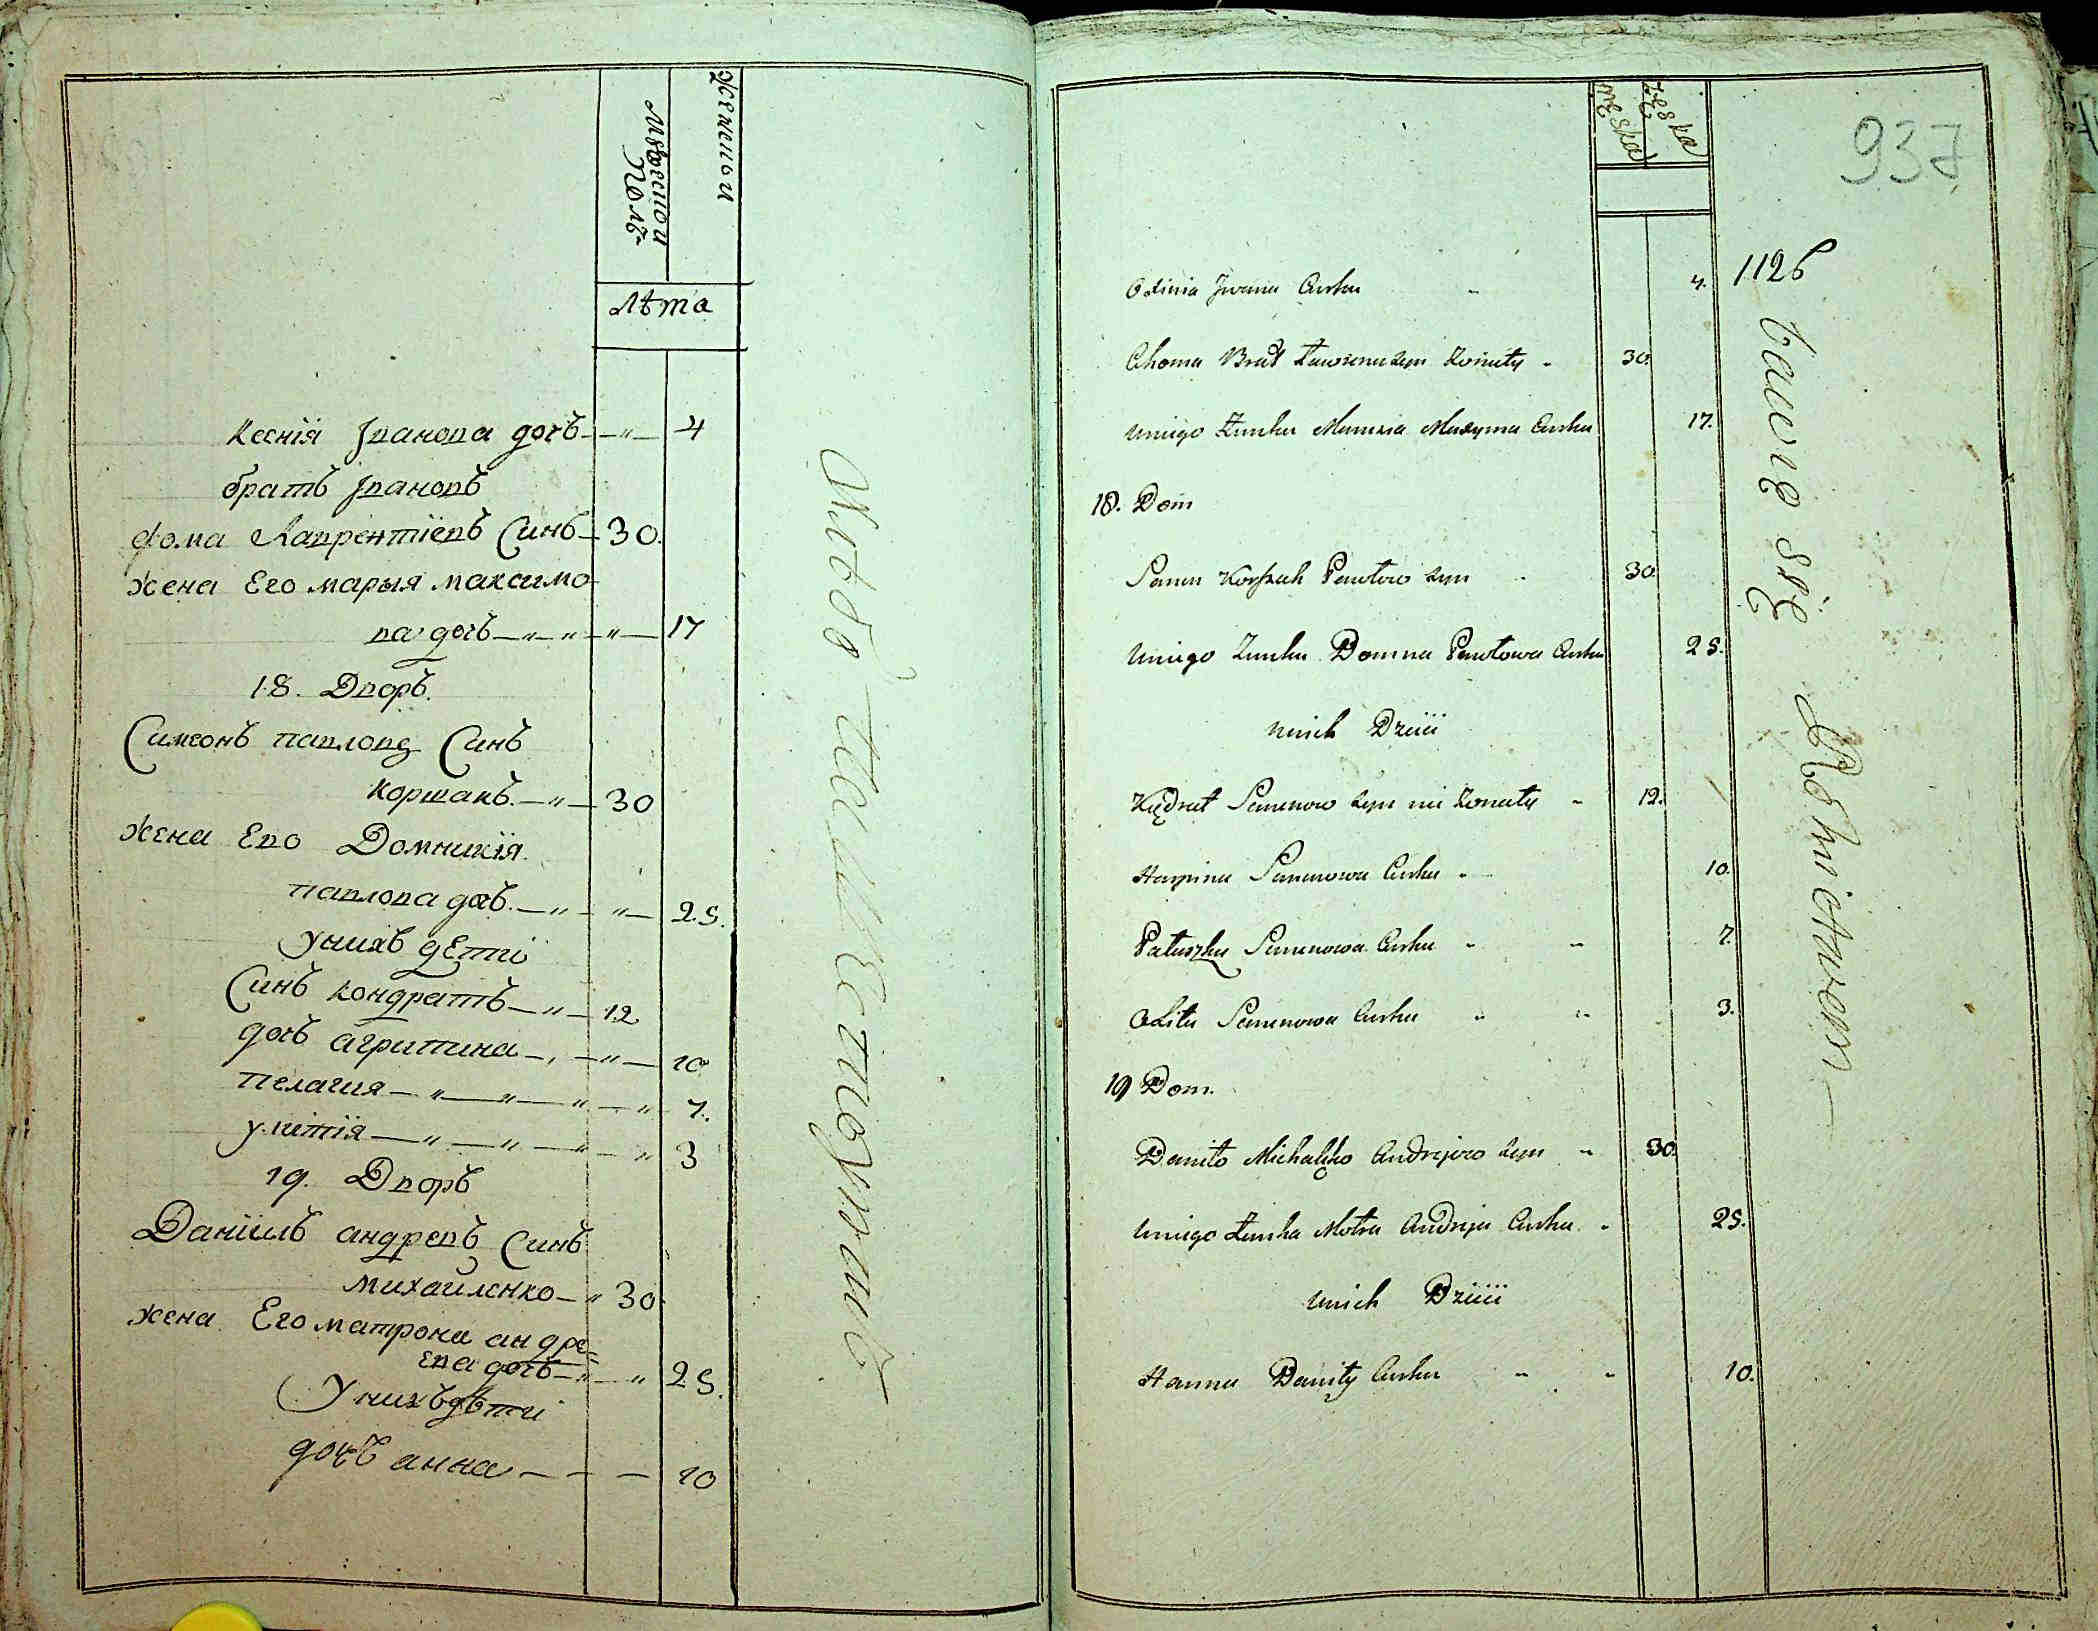 Мужеской
Полъ
Женски
Лѣта
Ксєнїя Іванова дочъ — „ — 4
братъ Івановъ
Фома Лаврентїевъ Синъ — 30.
жена Его марыя максимо
ва дочъ — „ — „ — „ — 17
18. Дворъ.
Симеонъ павловъ Синъ
коршакъ. — „ — 30
жена Ево Домникїя
павлова дочъ. — „ — „ — 25.
унихъ дЕті
Синъ кондратъ — „ — 12
дочъ агрипина — „ — „ — 10
пелагия — „ — „ — „ — „ 7.
улитїя — „ — „ — „ — „ 3
19. Дворъ
Данїилъ андревъ Синъ
михайленко — „ 30.
жена Его матрона андре=
ева дочъ — „ — „ 25.
Унихъ дѣті
дочъ анна — — — 10
męska
żęska
937
1126
Oxinia Jwana Curka „ 4.
Choma Brat Ławrenu syn Żonaty „ 30.
uniego Żunka Marusia Maxyma Curka 17.
18. Dom
Semen Korszak Pawłow syn „ 30.
uniego Żunka Domna Pawłowa Curka 25.
unich Dzieii
Kądrat Semenow syn nie Żonaty „ 12.
Harpina Semenowa Curka „ 10.
Pałaszka Semenowa Curka „ „ 7.
Olita Semenowa Curka „ „ 3.
19 Dom.
Daniło Michałko Andrejow syn „ 30.
uniego Żunka Motra Andreja Curka „ 25.
unich Dzieii
Hanna Daniły Curka „ „ 10.